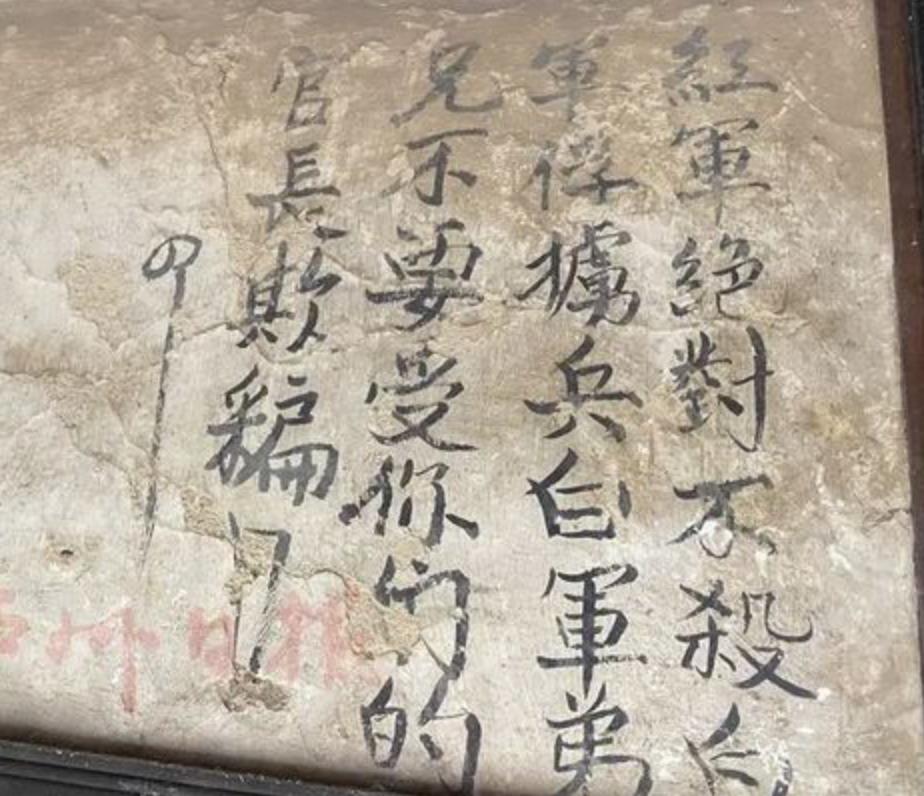 紅軍絕對不殺白
軍俘擄兵白軍弟
兄不要受你們的
官長欺騙了